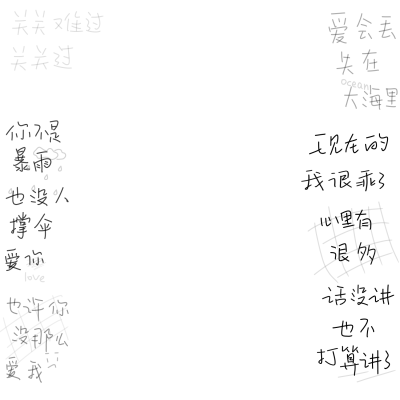 关关难过
关关过
你不是
暴雨
也没人
撑伞
爱你
love
也许你
没那么
爱我
爱会丢
失在
ocean
大海里
现在的
我很乖了
心里有
很多
话没讲
也不
打算讲了